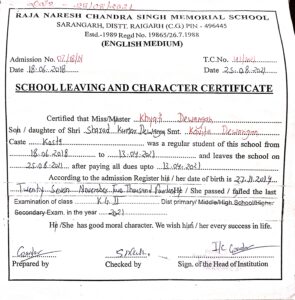 RAJA NARESH CHANDRA SINGH MEMORIAL SCHOOL
SARANGARH, DISTT. RAIGARH (C.G.) PIN - 496445
Estd.-1989 Regd No. 19865/26.7.1988
(ENGLISH MEDIUM)
Admission No. T.C. No.
Date 18.06.2018 Date 25.08.2021
SCHOOL LEAVING AND CHARACTER CERTIFICATE
Certified that Miss/Master Khyati Dewangan
Son / daughter of Shri Sharad Kumar Dewangan Smt. Kavita Dewangan
Caste Kosta was a regular student of this school from
18.06.2018 to 13.04.2021 and leaves the school on
25.08.2021 after paying all dues upto 13.04.2021
According to the admission Register his / her date of birth is 27.11.2014
Twenty Seven November Two Thousand Fourteen He / She passed / failed the last
Examination of class K.G. II Dist primary/Middle/High School/Higher
Secondary Exam. in the year 2021
He /She has good moral character. We wish him / her every success in life.
Prepared by Checked by Sign. of the Head of Institution